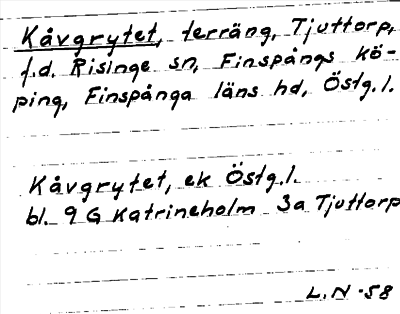 Kåvgrytet, terräng, Tjuttorp,
f.d. Risinge sn, Finspångs kö-
ping, Finspånga läns hd, Östg.l.
Kåvgrytet, ek Östg.l.
bl. 9 G Katrineholm 3a Tjuttorp
L.N -58